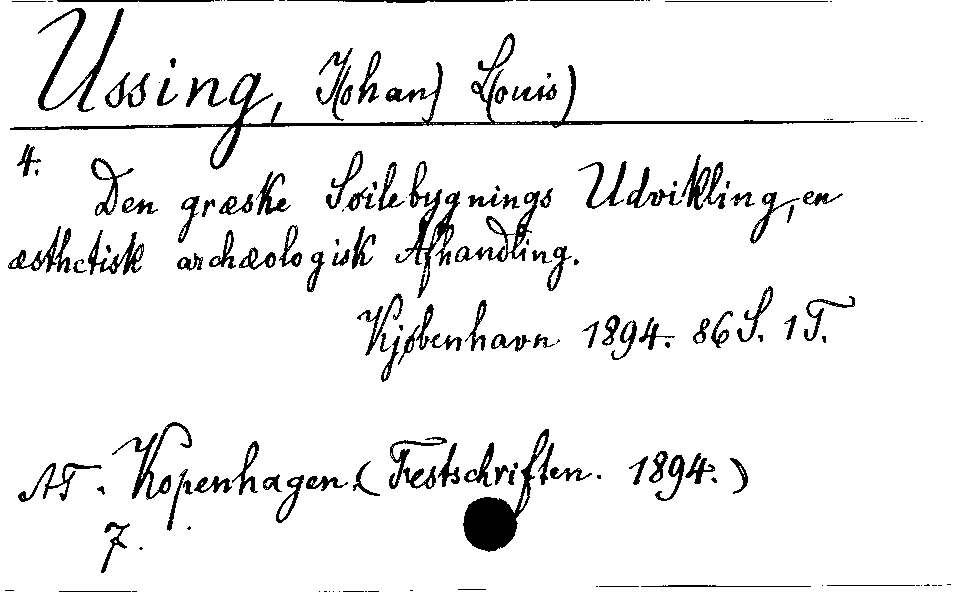 Ussing, J(ohan) L(ouis)
4.
Den græske Søilebygnings Udvikling, en
æsthetisk archæologisk Afhandling.
Kjøbenhavn 1894. 86 S. 1 T.
AT. Kopenhagen. (Festschriften. 1894.)
7.